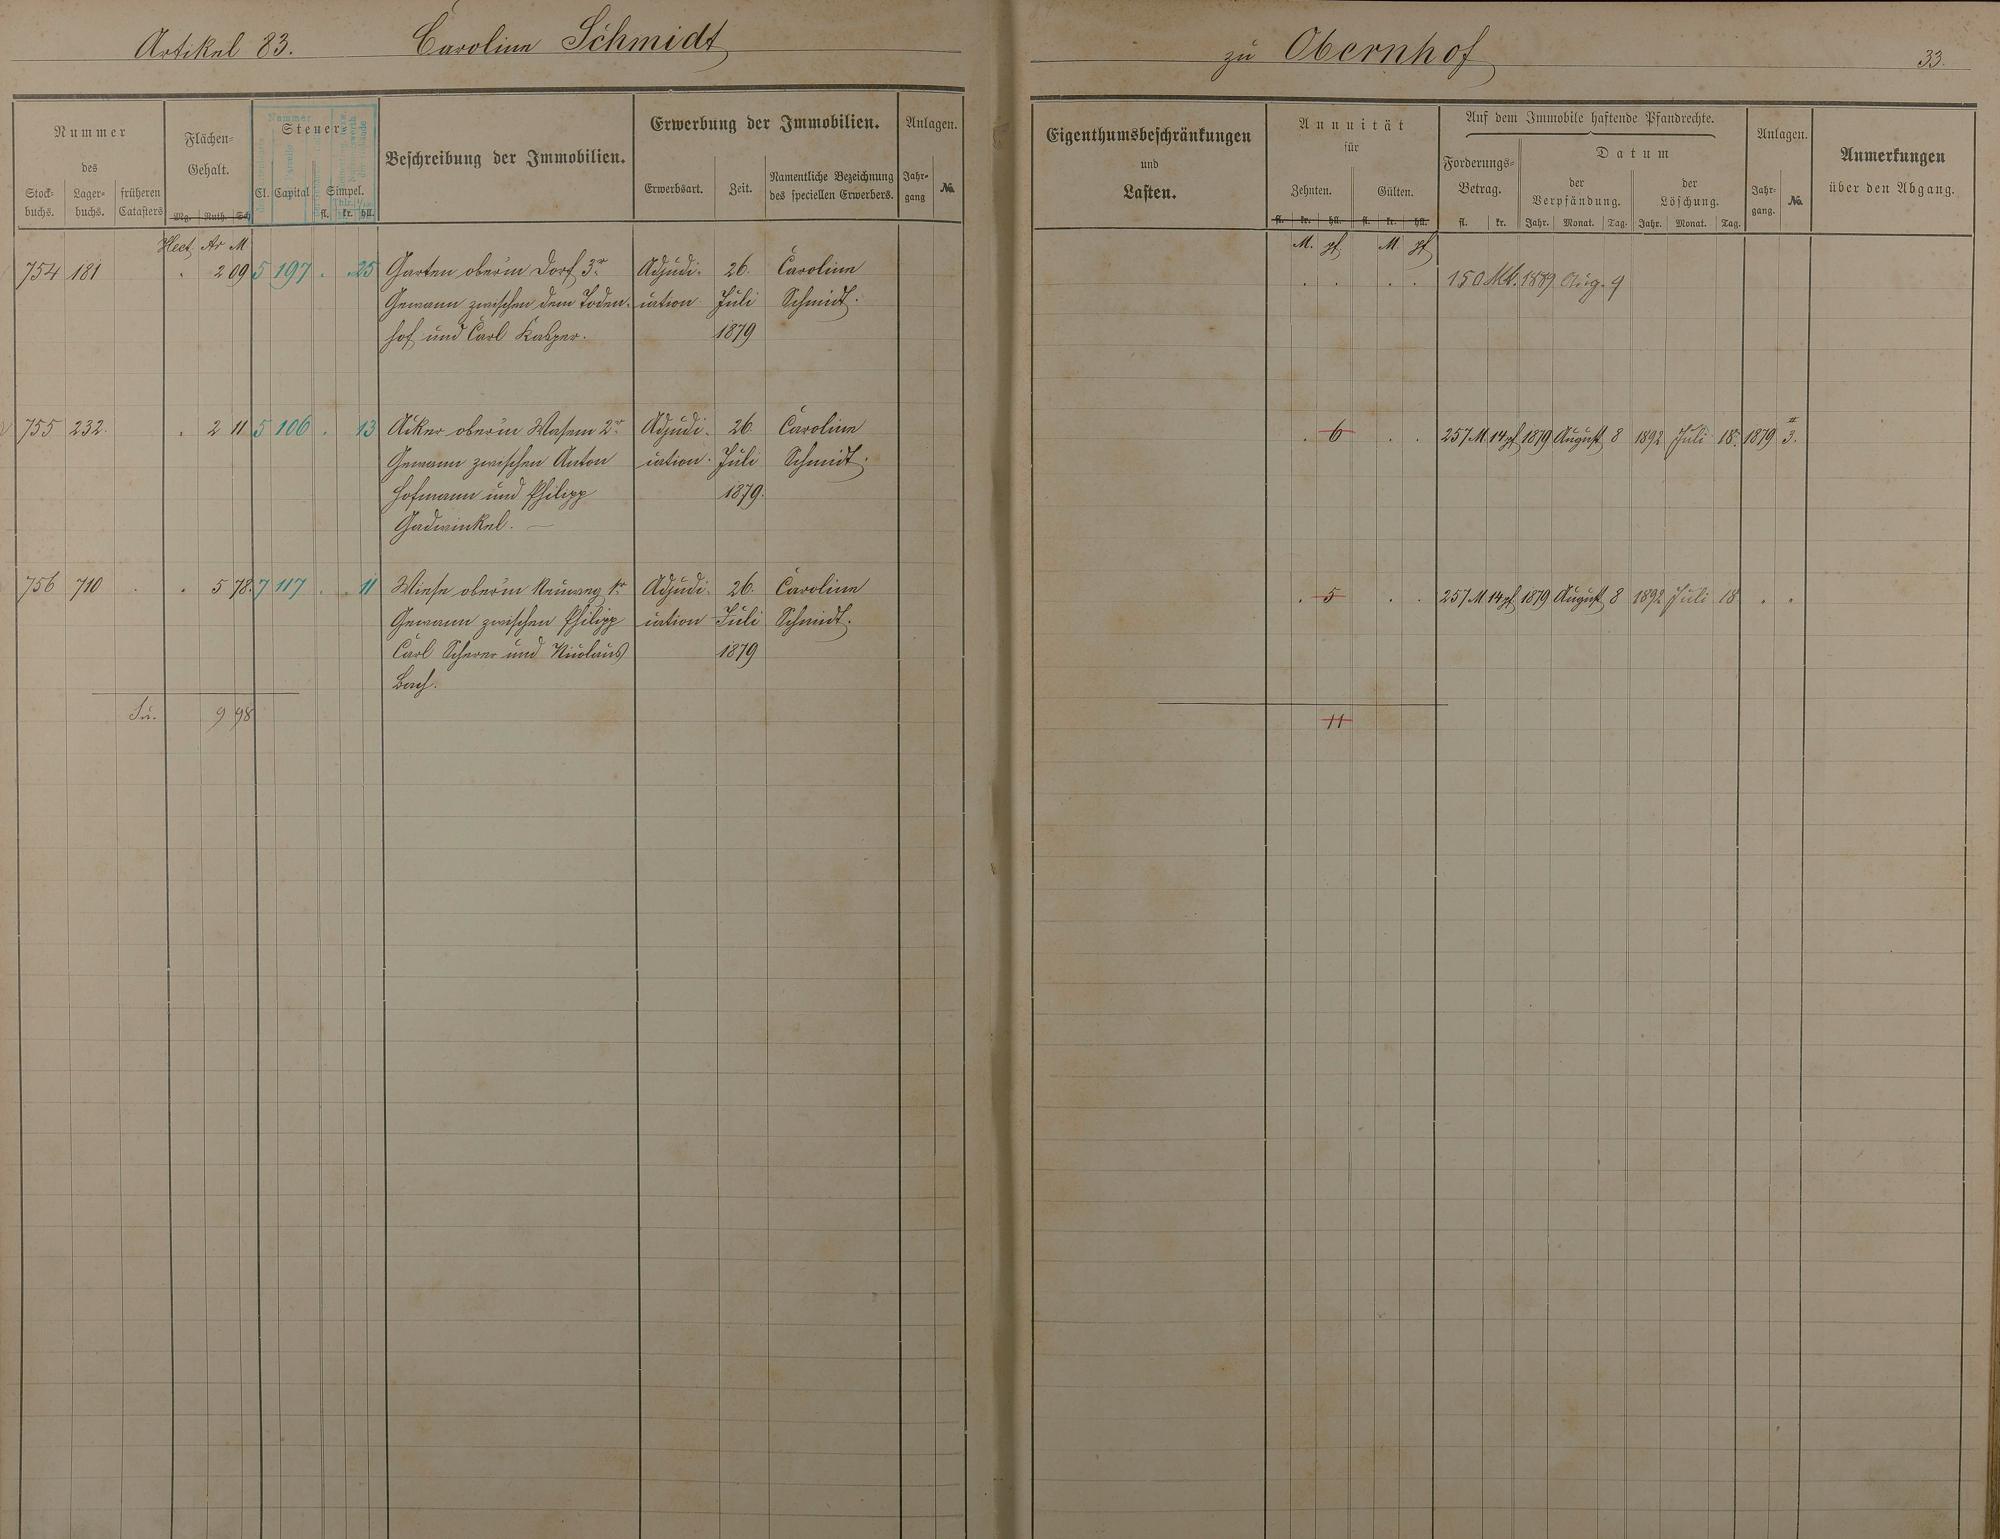 Artikel 83. Caroline Schmidt zu Obernhof 33.
Nummer
des
Stock-
buchs.
Lager-
buchs.
früheren
Catasters
Flächen-
Gehalt.
Mg. Ruth. Sch
Nummer
Steuer
Parzelle
Cl. Capital
Simpel.
Thlr.
fl. kr. hll.
Beschreibung der Immobilien.
Erwerbung der Immobilien.
Erwerbsart.
Zeit.
Namentliche Bezeichnung
des speciellen Erwerbers.
Anlagen.
Jahr-
gang
No.
Eigenthumsbeschränkungen
und
Lasten.
Annuität
für
Zehnten. Gülten.
fl. kr. hll. fl. kr. hll.
Auf dem Immobile haftende Pfandrechte.
Forderungs-
Betrag.
fl. kr.
Datum
der
Verpfändung.
Jahr. Monat. Tag.
der
Löschung.
Jahr. Monat. Tag.
Anlagen.
Jahr-
gang.
No.
Anmerkungen
über den Abgang.
Hect. Ar M
M. pf M. pf
754 181 . 2 09 5 197 . . 25 Garten ober'm Dorf 3r Adjudi- 26. Caroline . . . . 150 Mk. 1889 Aug. 9
Gewann zwischen dem Toden- cation Juli Schmidt.
hof und Carl Kasper. 1879
755 232. . 2 11 5 106 . 13 Acker ober'm Wasem 2r Adjudi- 26. Caroline . 6 . . 257 M 14 pf 1879 August 8 1892 Juli 18. 1879 II 3.
Gewann zwischen Anton cation. Juli Schmidt.
Hofmann und Philipp 1879.
Gadwinkel. —
756 710 . . 5 78. 7 117 . . 11 Wiese ober'm Reuweg 1r Adjudi- 26. Caroline . 5 . . 257 M 14 pf 1879 August 8 1892 Juli 18 " "
Gewann zwischen Philipp cation Juli Schmidt.
Carl Scherer und Nicolaus 1879
Bach.
Su. 9 98 11